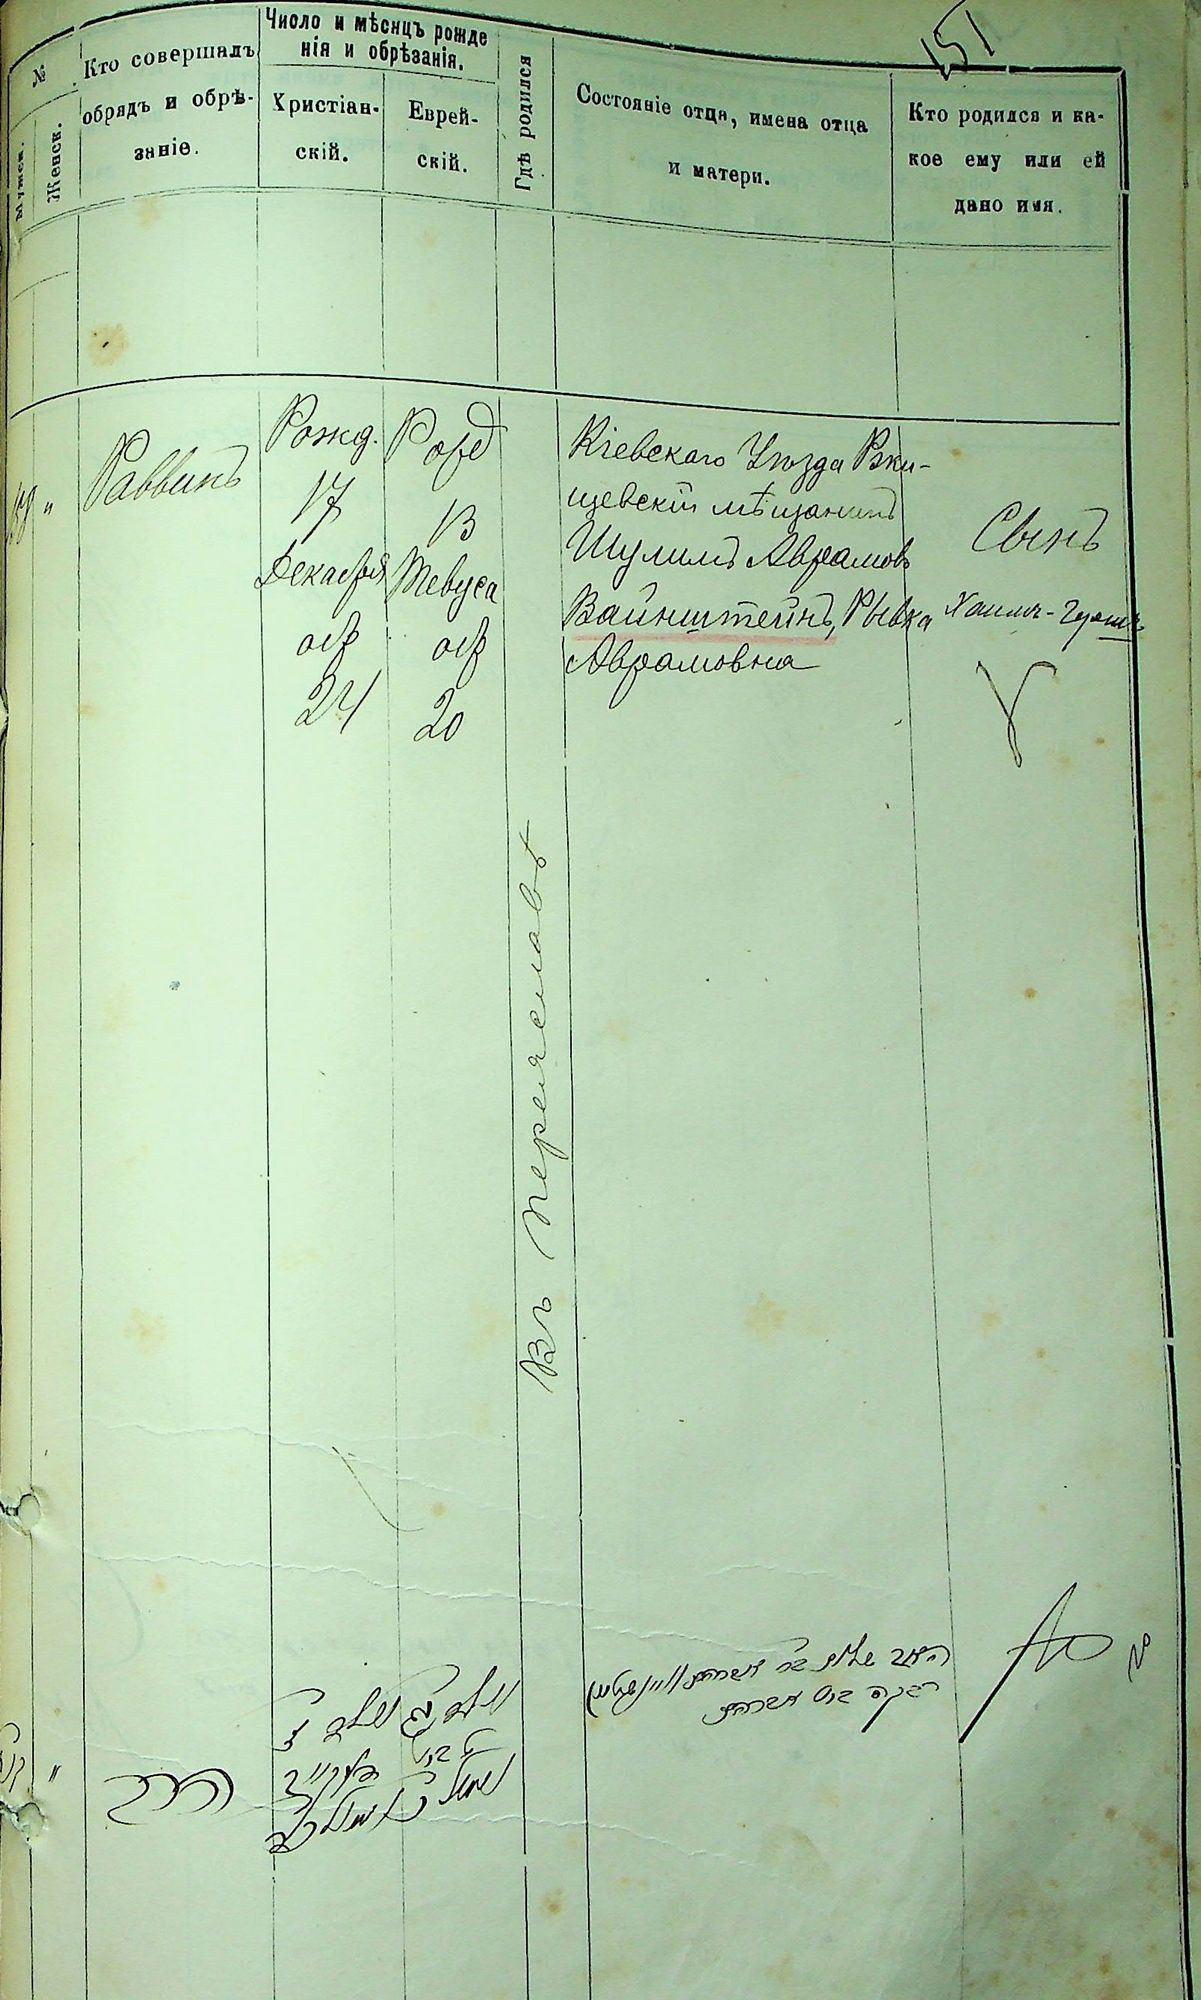 151
№
Мужск.
Женск.
Кто совершалъ
обрядъ и обрѣ-
заніе.
Число и мѣсяцъ рожде
нія и обрѣзанія.
Христіан-
скій.
Еврей-
скій.
Гдѣ родился
Состояніе отца, имена отца
и матери.
Кто родился и ка-
кое ему или ей
дано имя.
"
Раввинъ
Рожд.
17
Декабря
обр
24
Рожд
13
Тевуса
обр
20
Въ Переяславѣ
Кіевскаго Уѣзда Ржи-
щевскій мѣщанинъ
Шулимъ Аврамов
Вайнштейнъ, Рывка
Аврамовна
Сынъ
Хаимъ-Гершъ
"
הרב
האב שלום בר אברהם
רבקה בת אברהם